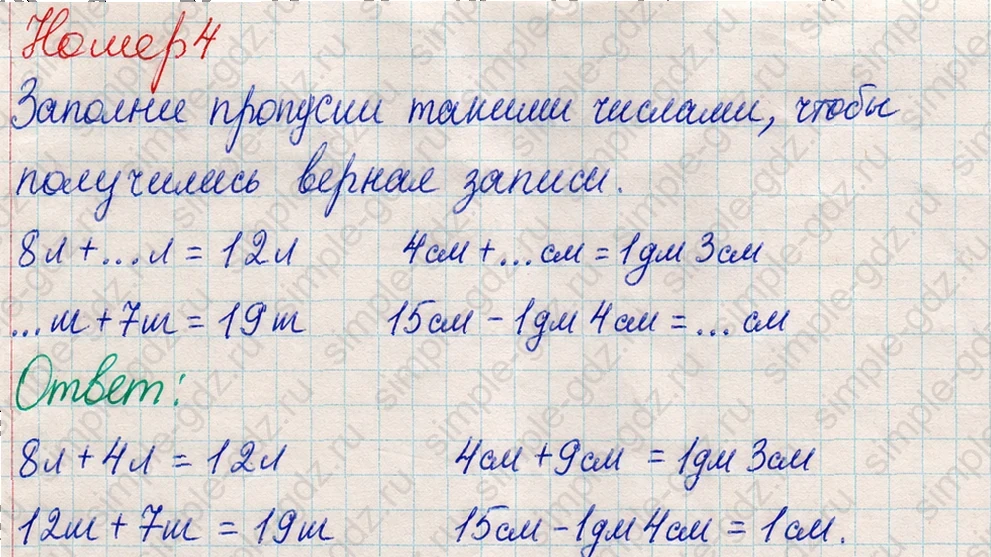 Номер 4
Заполни пропуски такими числами, чтобы
получились верная записи.
8л + ...л = 12л 4см + ...см = 1дм 3см
...т + 7т = 19т 15см - 1дм 4см = ... см
Ответ:
8л + 4л = 12л 4см + 9см = 1дм 3см
12т + 7т = 19т 15см - 1дм 4см = 1см.
simple-gdz.ru